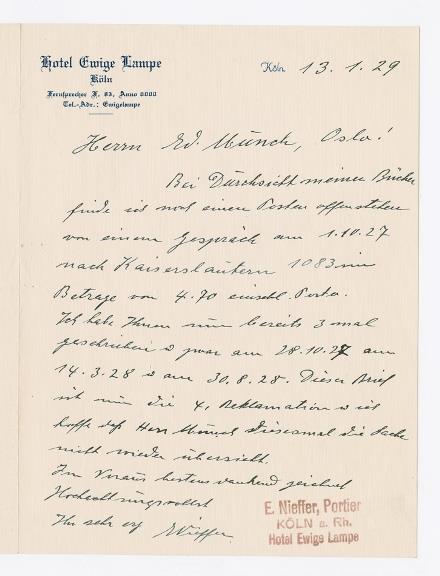 Hotel Ewige Lampe
Köln
Fernsprecher X. 83, Anno 6000
Tel.-Adr.: Ewigelampe
Köln 13.1.29
Herrn Ed. Münch, Oslo!
Bei Durchsicht meiner Bücher
finde ich noch einen Posten offenstehen
von einem Gespräch am 1.10.27
nach Kaiserslautern 1083 im
Betrage von 4.70 einschl. Porto.
Ich habe Ihnen nun bereits 3 mal
geschrieben u zwar am 28.10.27 am
14.3.28 u am 30.8.28. Dieser Brief
ist nun die 4. Reklamation u ich
hoffe daß Herr Münch diesesmal die Sache
nicht wieder übersieht.
Im Voraus bestens dankend zeichnet
Hochachtungsvollst
Ihr sehr erg ENieffer.
E. Nieffer, Portier
KÖLN a. Rh.
Hotel Ewige Lampe